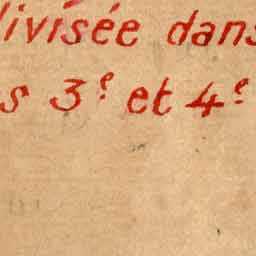 divisée dans
s 3e et 4e